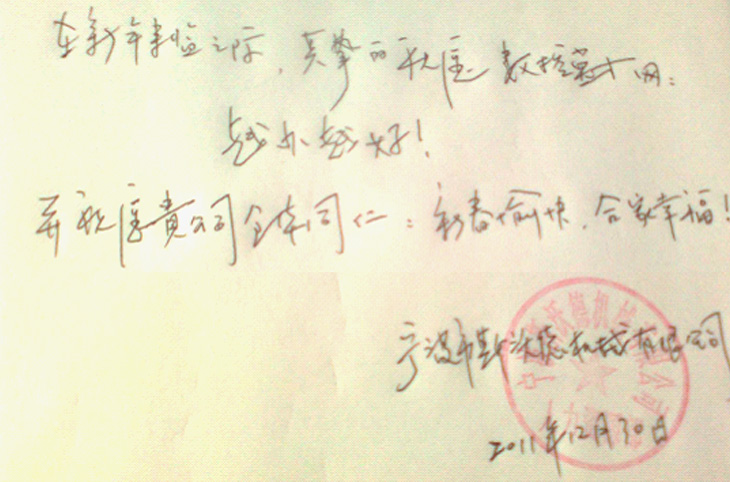 在新年到临之际，真挚的祝愿数控英才网：
越办越好！
并祝愿贵公司全体同仁：新春愉快，合家幸福！
宁波市斯沃德机械有限公司
2011年12月30日